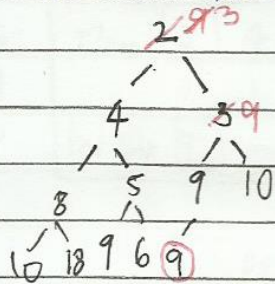 2 9 3
4 3 9
8 5 9 10
10 18 9 6 9